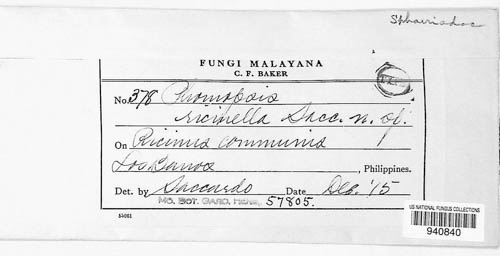 Sphaerioidac
FUNGI MALAYANA
C. F. BAKER
No. 378 Phomopsis
ricinella Sacc. n. sp.
On Ricinus communis
Los Banos, Philippines.
Det. by Saccardo Date Dec. '15
MO. BOT. GARD. HERB. 57805.
54061
US NATIONAL FUNGUS COLLECTIONS
940840